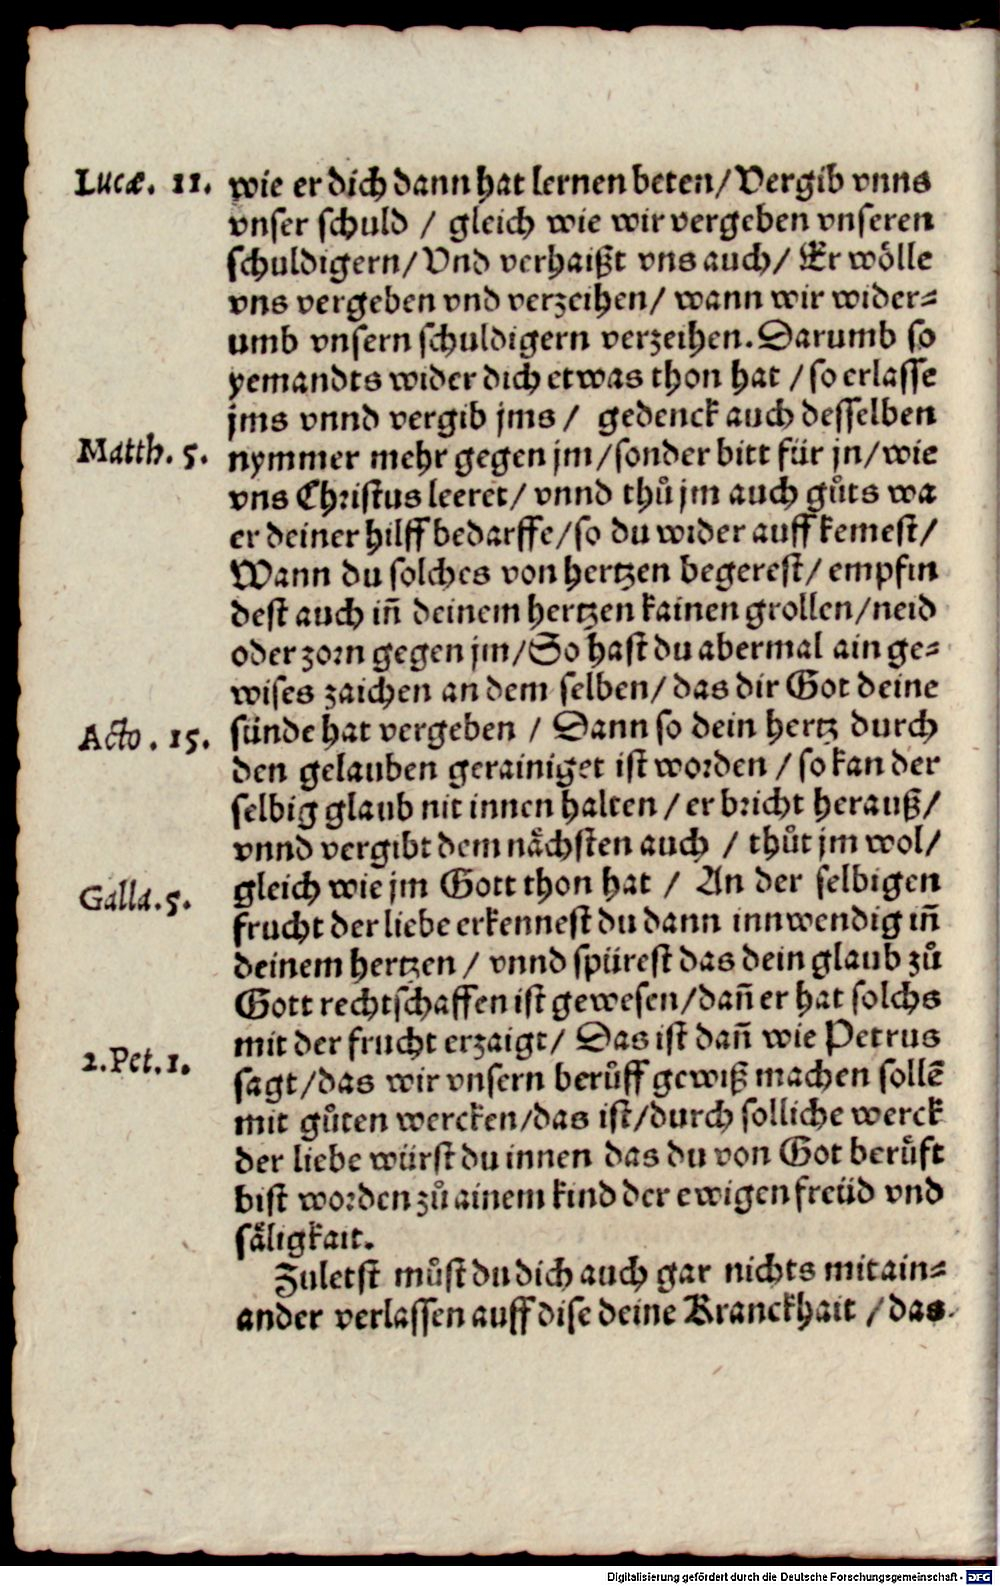 Lucæ. 11. wie er dich dann hat lernen beten/ Vergib vnns
vnser schuld / gleich wie wir vergeben vnseren
schuldigern/ Vnd verhaißt vns auch/ Er wölle
vns vergeben vnd verzeihen/ wann wir wider-
umb vnsern schuldigern verzeihen. Darumb so
yemandts wider dich etwas thon hat / so erlasse
jms vnnd vergib jms / gedenck auch desselben
Matth. 5. nymmer mehr gegen jm/ sonder bitt für jn/ wie
vns Christus leeret/ vnnd thů jm auch gůts wa
er deiner hilff bedarffe/ so du wider auff kemest/
Wann du solches von hertzen begerest/ empfin
dest auch iñ deinem hertzen kainen grollen/ neid
oder zorn gegen jm/ So hast du abermal ain ge-
wises zaichen an dem selben/ das dir Got deine
Acto. 15. sünde hat vergeben / Dann so dein hertz durch
den gelauben gerainiget ist worden / so kan der
selbig glaub nit innen halten / er bricht herauß/
vnnd vergibt dem nächsten auch / thůt jm wol/
Galla. 5. gleich wie jm Gott thon hat / An der selbigen
frucht der liebe erkennest du dann innwendig iñ
deinem hertzen / vnnd spürest das dein glaub zů
Gott rechtschaffen ist gewesen/ dañ er hat solchs
mit der frucht erzaigt/ Das ist dañ wie Petrus
2. Pet. 1. sagt/ das wir vnsern berůff gewiß machen sollē
mit gůten wercken/ das ist/ durch solliche werck
der liebe würst du innen das du von Got berůft
bist worden zů ainem kind der ewigen freüd vnd
säligkait.
Zuletst můst du dich auch gar nichts mitain-
ander verlassen auff dise deine Kranckhait / das
Digitalisierung gefördert durch die Deutsche Forschungsgemeinschaft - DFG